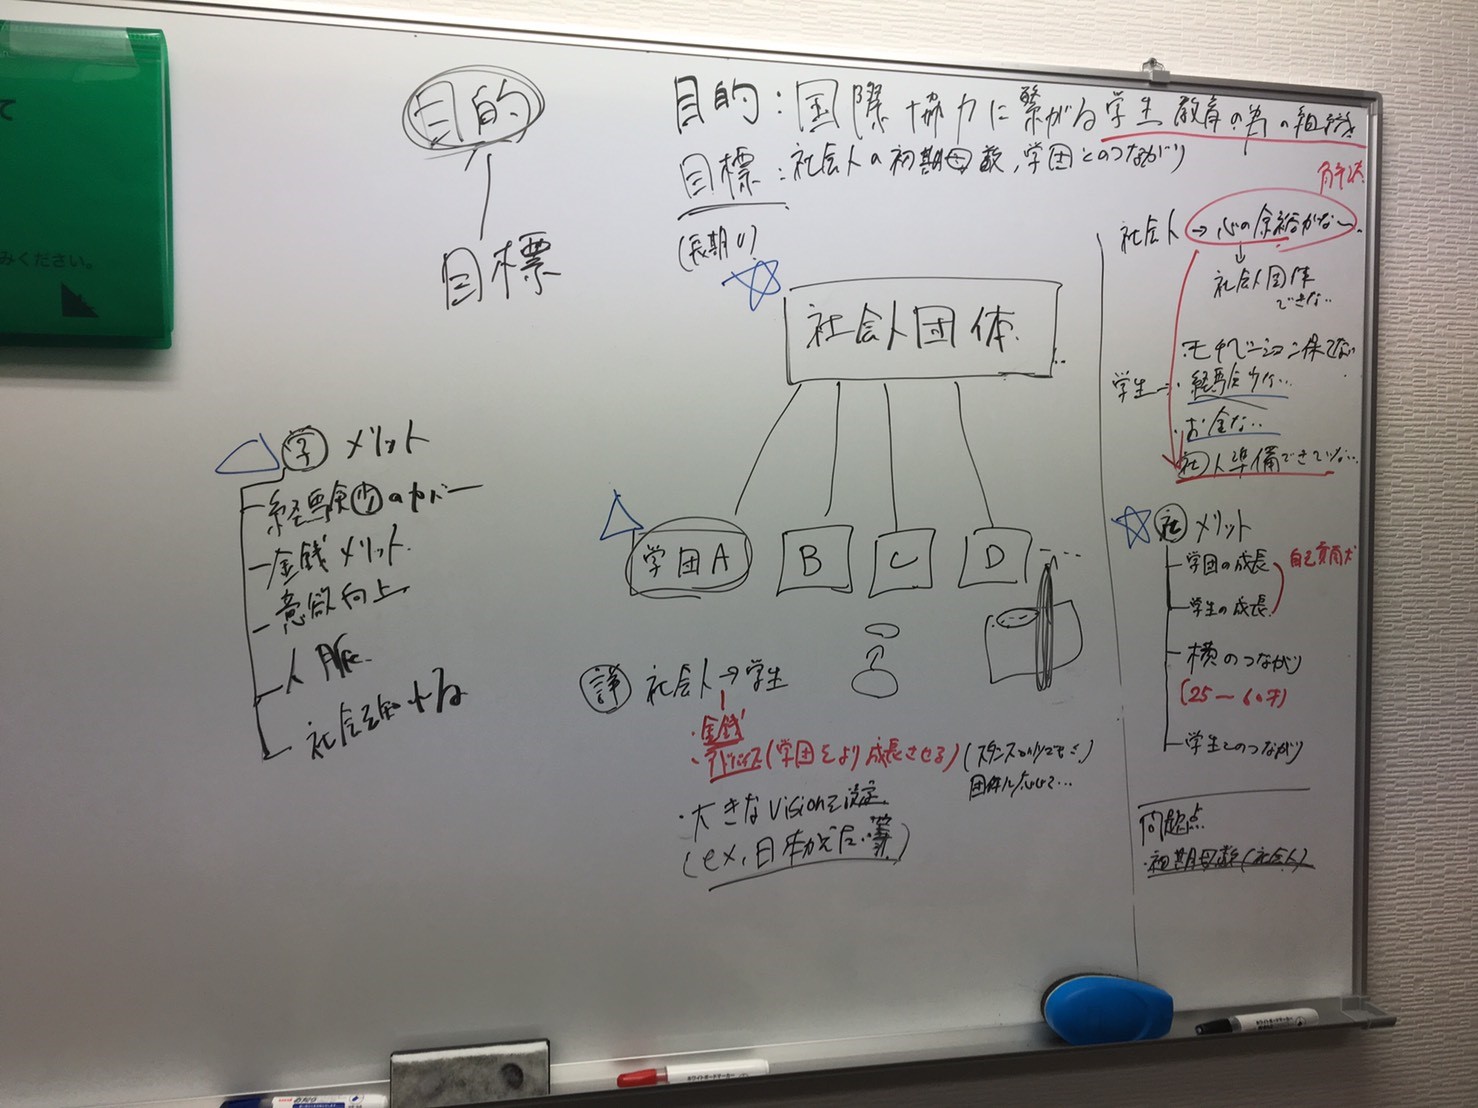 目的
目標
目的：国際協力に繋がる学生教育の為の組織
目標：社会人の初期母数、学団とのつながり
(長期り)
社会人団体
学団A
B
C
D
学 メリット
経験少のカバー
金銭メリット
意欲向上
人脈
社会を知れる
詳 社会人→学生
・金銭
・アドバイス(学団をより成長させる)
(スタンス
団体に応じて…
・大きなVisionを設定
(ex.日本
解決
社会人→心の余裕がない
社会人団体
できない
・モチベーション保てない
学生→・経験少ない
・お金ない
社人準備できていない
社 メリット
学団の成長
学生の成長
自己貢献
横のつながり
(25〜60才)
学生とのつながり
問題点
・初期母数(社会人)
て
みください。
ホワイトボードマーカー